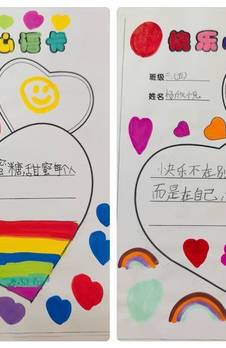 心语卡
蜜糖,甜蜜每
快乐
班级 三(四)
姓名
快乐不在别
而是在自己,